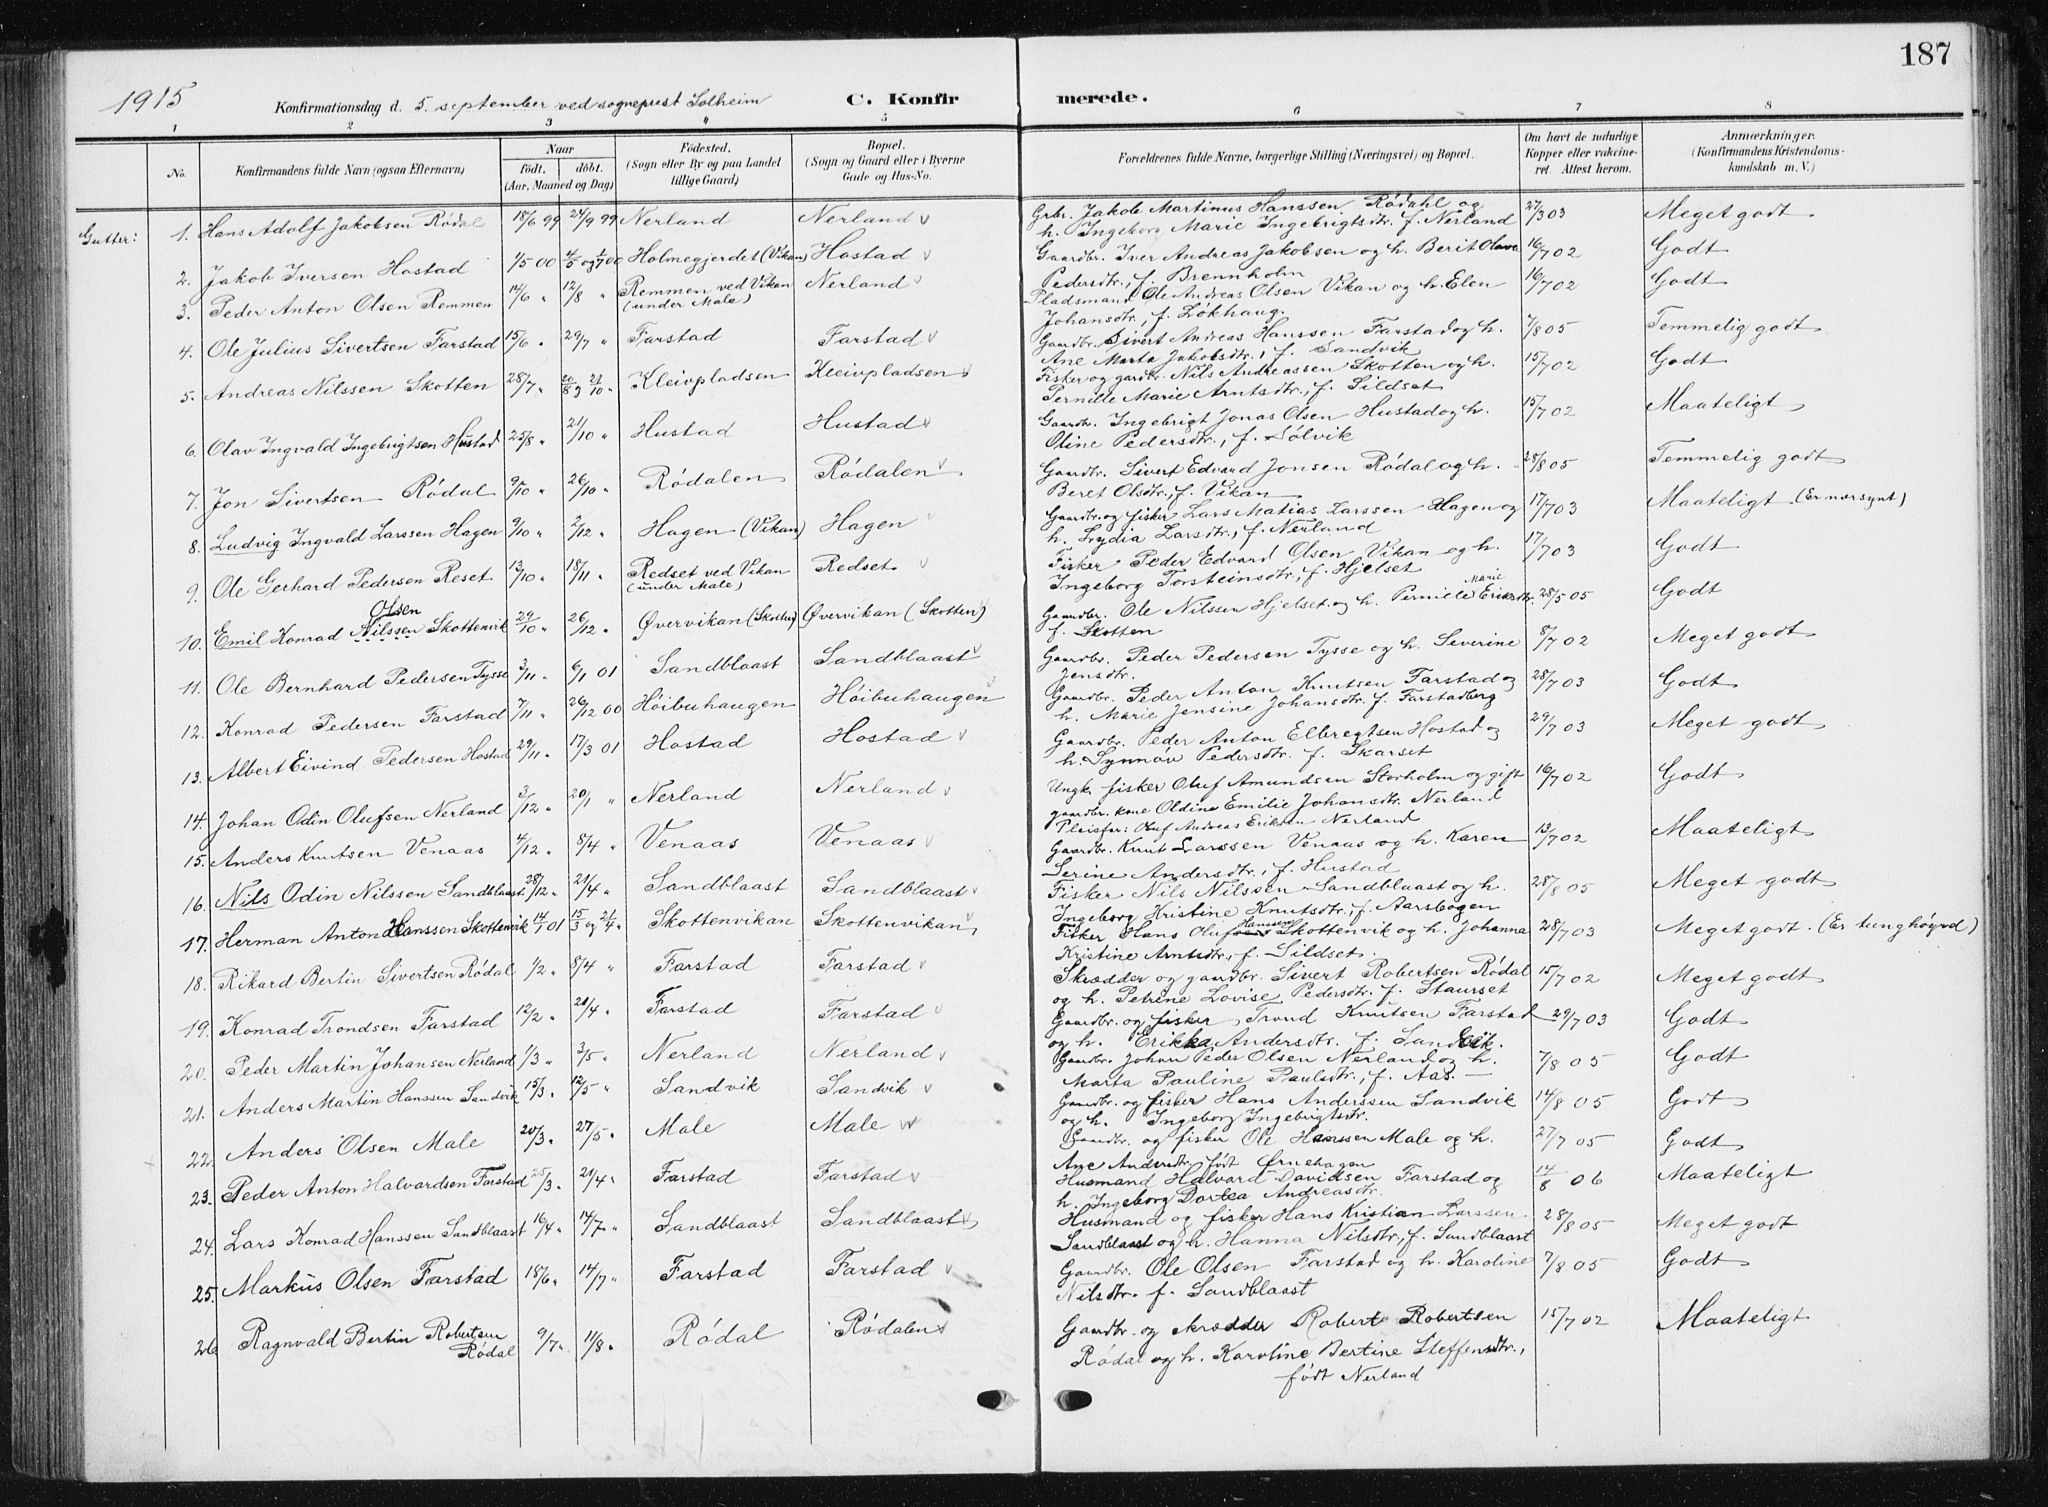 187
1915 Konfirmationsdag d. 5. september ved sogneprest Solheim C. Konfirmerede.
1 2 3 4 5 6 7 8
No. Konfirmandens fulde Navn (ogsaa Efternavn) Naar født. døbt. (Aar, Maaned og Dag) Fødested. (Sogn eller By og paa Landet tillige Gaard) Bopæl. (Sogn og Gaard eller i Byerne Gade og Hus-No. Forældrenes fulde Navne, borgerlige Stilling (Næringsvei) og Bopæl. Om havt de naturlige Kopper eller vakcineret. Attest herom. Anmærkninger. (Konfirmandens Kristendomskundskab m. V.)
Gutter: 1. Hans Adolf Jakobsen Rødal 18/6 99 24/9 99 Nerland Nerland v Grbr. Jakob Martinus Hanssen Rødahl og 27/3 03 Meget godt
h. Ingeborg Marie Ingebrigtsdtr. f. Nerland
2. Jakob Iversen Hostad 1/5 00 4/5 og 1/7 00 Holmegjerdet (Vikan) Hostad v Gaardbr. Iver Andreas Jakobsen og h. Berit Olave 16/7 02 Godt
Pedersdtr., f. Brennholm
3. Peder Anton Olsen Remmen 14/6 " 12/8 " Remmen ved Vikan (under Male) Nerland v Pladsmand Ole Andreas Olsen Vikan og h. Elen 16/7 02 Godt
Johansdtr., f. Løkhaug.
4. Ole Julius Sivertsen Farstad 15/6 " 29/7 " Farstad Farstad v Gaardbr. Sivert Andreas Hanssen Farstad og h. 7/8 05 Temmelig godt
Ane Marta Jakobsdtr., f. Sandvik
5. Andreas Nilssen Skotten 28/7 " 20/8 og 21/10 " Kleivpladsen Kleivpladsen v Fisker og gardbr. Nils Andreassen Skotten og h. 15/7 02 Godt
Pernille Marie Arntsdtr., f. Sildset
6. Olav Ingvald Ingebrigtsen Hustad 25/8 " 21/10 " Hustad Hustad v Gaardbr. Ingebrigt Jonas Olsen Hustad og h. 15/7 02 Maateligt
Oline Pedersdtr., f. Sølvik
7. Jon Sivertsen Rødal 9/10 " 26/10 " Rødalen Rødalen v Gaardbr. Sivert Edvard Jonsen Rødal og h. 28/8 05 Temmelig godt
Beret Olsdtr., f. Vikan
8. Ludvig Ingvald Larssen Hagen 9/10 " 2/12 " Hagen (Vikan) Hagen v Gaardbr. og fisker Lars Matias Larssen Hagen og 17/7 03 Maateligt (Er nærsynt)
h. Lydia Larsdtr., f. Nerland
9. Ole Gerhard Pedersen Reset 13/10 " 18/11 " Redset ved Vikan (under Male) Redset v Fisker Peder Edvard Olsen Vikan og h. 17/7 03 Godt
Ingeborg Torsteinsdtr., f. Hjelset
10. Emil Konrad Nilssen Olsen Skottenvik 29/10 " 26/12 " Øvervikan (Skotten) Øvervikan (Skotten) Gaardbr. Ole Nilssen Hjelset og h. Pernille Marie Eriksdtr. 28/5 05 Godt
f. Skotten
11. Ole Bernhard Pedersen Tysse 3/11 " 6/1 01 Sandblaast Sandblaast v Gaardbr. Peder Pedersen Tysse og h. Severine 8/7 02 Meget godt
Jensdtr.
12. Konrad Pedersen Farstad 7/11 " 26/12 00 Høibuhaugen Høibuhaugen v Gaardbr. Peder Anton Knutsen Farstad og 28/7 03 Godt
h. Marie Jensine Johansdtr. f. Farstadberg
13. Albert Eivind Pedersen Hostad 29/11 " 17/3 01 Hostad Hostad v Gaardbr. Peder Anton Elbregtsen Hostad og 29/7 03 Meget godt
h. Synnøv Pedersdtr. f. Skarset
14. Johan Odin Olufsen Nerland 3/12 " 20/1 " Nerland Nerland v Ungk. fisker Oluf Amundsen Storholm og gift 16/7 02 Godt
gaardbr. kone Oldine Emilie Johansdtr. Nerland
Pleiefar: Oluf Andreas Eriksen Nerland
15. Anders Knutsen Venaas 4/12 " 8/4 " Venaas Venaas v Gaardbr. Knut Larssen Venaas og h. Karen 13/7 02 Maateligt
Serine Andersdtr., f. Hustad
16. Nils Odin Nilssen Sandblaast 28/12 " 21/4 " Sandblaast Sandblaast v Fisker Nils Nilssen Sandblaast og h. 28/8 05 Meget godt
Ingeborg Kristine Knutsdtr., f. Aarsbogen
17. Herman Anton Hanssen Skottenvik 14/1 01 15/3 og 21/4 " Skottenvikan Skottenvikan v Fisker Hans Oluf Hanssen Skottenvik og h. Johanna 28/7 03 Meget godt. (Er tunghøyrd)
Kristine Arntsdtr., f. Sildset.
18. Rikard Bertin Sivertsen Rødal 1/2 " 8/4 " Farstad Farstad v Skrædder og gaardbr. Sivert Robertsen Rødal 15/7 02 Meget godt
og h. Petrine Lovise Pedersdtr. f. Staurset
19. Konrad Trondsen Farstad 12/2 " 21/4 " Farstad Farstad v Gaardbr. og fisker Trond Knutsen Farstad 29/7 03 Godt
og h. Erikka Andersdtr. f. Sandvik.
20. Peder Martin Johansen Nerland 1/3 " 3/5 " Nerland Nerland v Gaardbr. Johan Peder Olsen Nerland og h. 7/8 05 Godt
Marta Pauline Paulsdtr., f. Aas. —
21. Anders Martin Hanssen Sandvik 15/3 " 12/5 " Sandvik Sandvik v Gaardbr. og fisker Hans Anderssen Sandvik 14/8 05 Godt
og h. Ingeborg Ingebrigtsdtr.
22. Anders Olsen Male 20/3 " 27/5 " Male Male v Gaardbr. og fisker Ole Hanssen Male og h. 27/7 05 Godt
Ane Andersdtr. født Ørnehagen
23. Peder Anton Halvardsen Farstad 25/3 " 21/4 " Farstad Farstad v Husmand Halvard Davidsen Farstad og 14/8 06 Maateligt
h. Ingeborg Dortea Andreasdtr.
24. Lars Konrad Hanssen Sandblaast 16/4 " 14/7 " Sandblaast Sandblaast v Husmand og fisker Hans Kristian Larssen 28/8 05 Meget godt
Sandblaast og h. Hanna Nilsdtr., f. Sandblaast
25. Markus Olsen Farstad 18/6 " 14/7 " Farstad Farstad v Gaardbr. Ole Olsen Farstad og h. Karoline 7/8 05 Godt
Nilsdtr. f. Sandblaast
26 Ragnvald Bertin Robertsen Rødal 9/7 " 11/8 " Rødal Rødalen v Gaardbr. og skrædder Robert Robertsen 15/7 02 Maateligt
Rødal og h. Karoline Bertine Steffensdtr.,
født Nerland